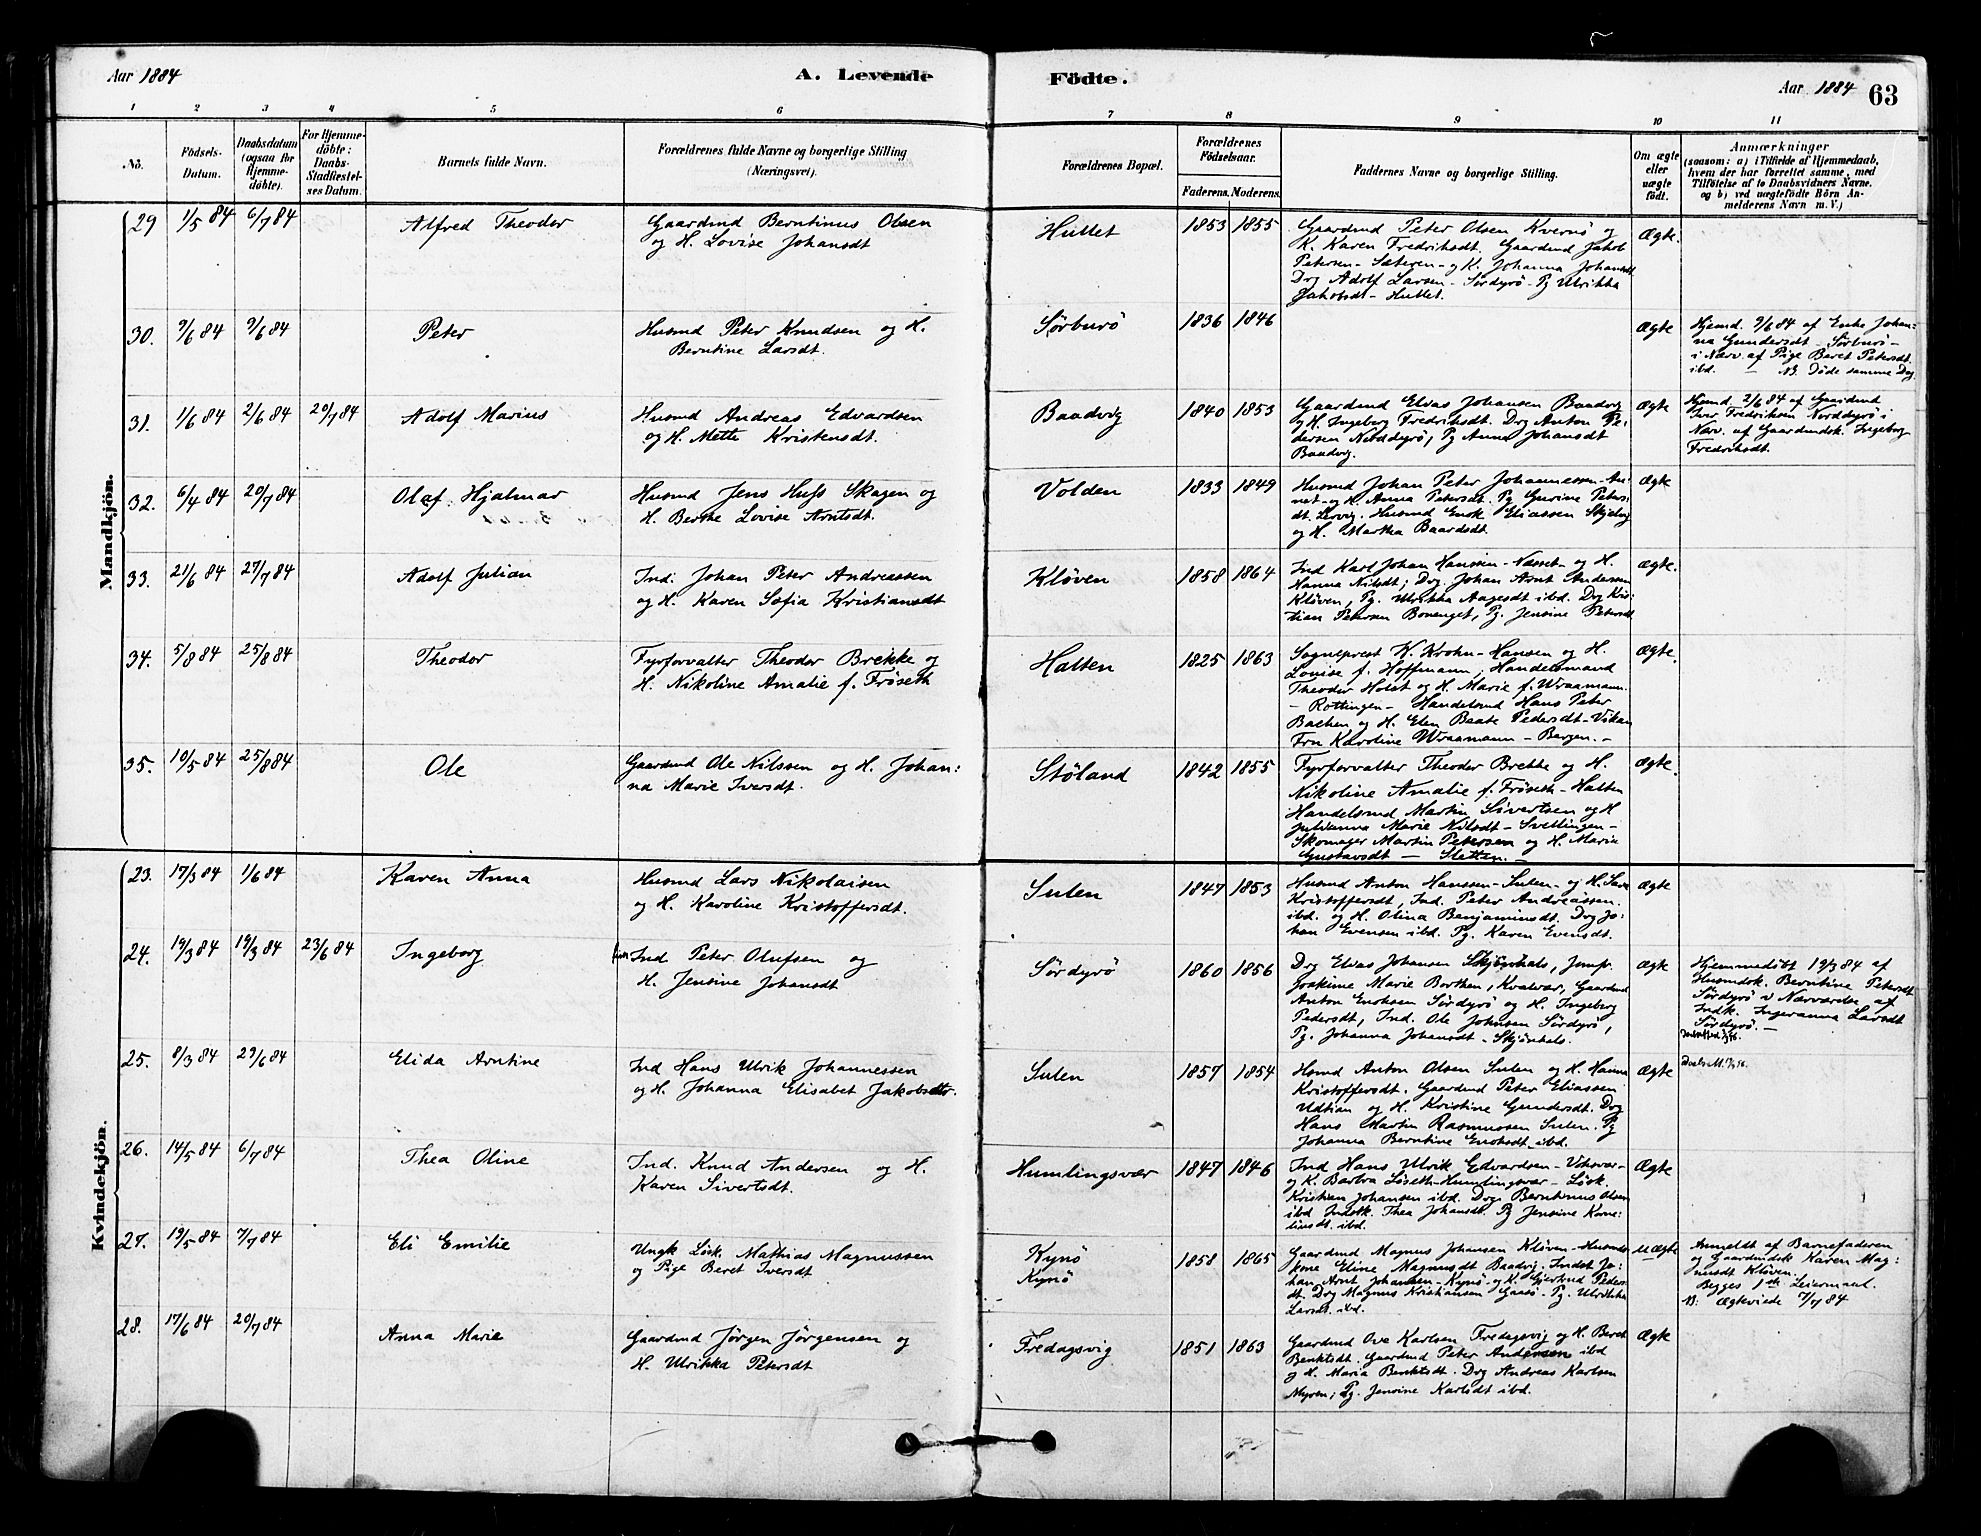 Aar 1884
A. Levende
Födte.
Aar 1884
63
1 2 3 4 5 6 7 8 9 10 11
No.
Födsels-
Datum.
Daabsdatum
(ogsaa for
Hjemme-
döbte).
For Hjemme-
döbte:
Daabs-
Stadfæstel-
ses Datum.
Barnets fulde Navn.
Forældrenes fulde Navne og borgerlige Stilling
(Næringsvei).
Forældrenes Bopæl.
Forældrenes
Födselsaar.
Faderens. Moderens.
Faddernes Navne og borgerlige Stilling.
Om ægte
eller
uægte
födt.
Anmærkninger
(saasom: a) i Tilfælde af Hjemmedaab,
hvem der har forrettet samme, med
Tilföielse af to Daabsvidners Navne.
og b) ved uægtefödte Börn An-
melderens Navn m. V.)
Mandkjön.
29 1/5 84 6/7 84 Alfred Theodor
Gaardmd Berntinus Olsen
og H. Lovise Johansdt
Hullet 1853 1855
Gaardmd Peter Olsen Kvernø og
K. Karen Fredriksdt. Gaardmd Jakob
Petersen - Sæteren - og K. Johanna Johansdt
Drg Adolf Larsen - Sørdyrø - Pg Ulrikka
Jakobsdt - Hullet.
Ægte.
30. 9/6 84 9/6 84 Peter
Husmd Peter Knudsen og H.
Berntine Larsdt.
Sørburø 1836 1846
Ægte
Hjemd. 9/6 84 af Enke Johan-
na Gundersdt - Sørburø -
i Nærv. af Pige Beret Petersdt
ibd. - NB. Døde samme Dag
31. 1/6 84 2/6 84 20/7 84 Adolf Marius
Husmd Andreas Edvardsen
og H. Mette Kristensdt.
Baadvig 1840 1853
Gaardmd Elias Johansen Baadvig
og H. Ingeborg Fredriksdt. Drg Anton Pe-
dersen Norddyrø, Pg Anna Johansdt
Baadvig.
Ægte
Hjemd. 2/6 84 af Gaardmd
Iver Fredriksen Norddyrø i
Nærv. af Gaardmdsk. Ingeborg
Fredriksdt.
32. 6/4 84 20/7 84 Olaf Hjalmar
Husmd Jens Huss Skagen og
H. Berthe Lovise Arntsdt.
Volden 1833 1849
Husmd Johan Peter Johannessen
og K. Anna Petersdt. Pg Gurine Peters-
dt. Lervig. Husmd Enok Eliassen
og H. Martha Baardsdt.
Ægte
33. 21/6 84 27/7 84 Adolf Julian
Ind. Johan Peter Andreassen
og H. Karen Sofia Kristiansdt
Kløven 1858 1864
Ind Karl Johan Hanssen - Næsset - og H.
Hanna Nilsdt; Drg. Johan Arnt Andersen
Kløven, Pg. Ulrikka Aagesdt ibd. Drg Kris-
tian Petersen Bonenget, Pg. Jensine Petersdt
Ægte.
34. 5/8 84 25/8 84 Theodor
Fyrforvalter Theodor Brekke og
H. Nikoline Amalie f. Frøseth
Halten 1825 1863
Sogneprest K. Krohn-Hansen og H.
Louise f. Hoffmann, Handelsmand
Theodor Holst og H. Marie f. Wraamann.
- Rottingen - Handelsmd Hans Peter
Bachen og H. Elen Beate Pedersdt - Vikan
Fru Karoline Wraamann - Bergen. -
Ægte.
35. 10/5 84 25/8 84 Ole
Gaardmd Ole Nilssen og H. Johan-
na Marie Iversdt.
Støland 1842 1855
Fyrforvalter Theodor Brekke og H.
Nikoline Amalie f. Frøseth - Halten
Handelsmd Martin Sivertsen og H
Julianna Marie Nilsdt - Svellingen -
Skomager Martin Petersen og H. Marie
Gustavsdt - Sletten. -
Ægte.
Kvindekjön.
23. 17/3 84 1/6 84 Karen Anna
Husmd Lars Nikolaisen
og H. Karoline Kristoffersdt.
Sulen 1847 1853
Husmd Anton Hanssen - Sulen - og H. Sara
Kristoffersdt, Ind. Peter Andreassen
ibd. og H. Olina Benjaminsdt. Drg Jo-
han Evensen ibd. Pg. Karen Evensdt.
Ægte
24. 19/3 84 19/3 84 23/6 84 Ingeborg
Ind Peter Olufsen og
H. Jensine Johansdt
Sørdyrø 1860 1856
Drg Elias Johansen Skjønhals, Jomfr.
Joakime Marie Borthen, Kvalvær, Gaardmd
Anton Enoksen Sørdyrø og H. Ingeborg
Pedersdt, Ind. Ole Johnsen Sørdyrø,
Pg. Johanna Johansdt - Skjønhals.
Ægte
Hjemmedøbt 19/3 84 af
Husmdsk. Berntine Petersdt
Sørdyrø i Nærværelse af
Indk. Ingeranna Larsdt
Sørdyrø. -
25. 8/3 84 29/6 84 Elida Arntine
Ind Hans Ulrik Johannessen
og H. Johanna Elisabet Jakobsdtr.
Sulen 1857 1854
Hsmd Anton Olsen Sulen og H. Hanna
Kristoffersdt. Gaardmd Peter Eliassen
Udtian og H. Kristine Gundersdt. Drg
Hans Martin Rasmussen Sulen. Pg
Johanna Berntine Enoksdt ibd.
Ægte
26. 14/5 84 6/7 84 Thea Oline
Ind. Knud Andersen og H.
Karen Sivertsdt.
Humlingsvær 1847 1846
Ind Hans Ulrik Edvardsen - Voksvær -
og K. Barbra Løseth - Humlingsvær - Løsk.
Kristian Johansen ibd. Drg. Berntinus Olsen
ibd Indstk. Thea Johansdt. Pg Jensine Korne-
liusdt. ibd.
Ægte
27. 19/5 84 7/7 84 Eli Emilie
Ungk Løsk. Mathias Magnussen
og Pige Beret Iversdt
Kynø
Kynø
1858 1865
Gaardmd Magnus Johansen Kløven - Husmds-
kone Eline Magnusdt Baadvig - Indst Jo-
han Arnt Johansen - Kynø - og K. Gjertrud Peders-
dt. Drg Magnus Kristiansen Gaasø. Pg. Ulrikka
Larsdt ibd.
uægte
Anmeldt af Barnefaderen
og Gaardmdsk Karen Mag-
nusdt Kløven.
Begges 1ste Leiermaal.
NB: Ægteviede 7/7 84
28. 17/6 84 20/7 84 Anna Marie
Gaardmd Jørgen Jørgensen og
H. Ulrikka Petersdt
Fredagsvig 1851 1863
Gaardmd Ove Karlsen Fredagsvig og H. Beret
Benktsdt. Gaardmd Peter Andersen ibd
og H. Maria Benktsdt. Drg Andreas Karlsen
Myren; Pg. Jensine Karlsdt ibd.
Ægte